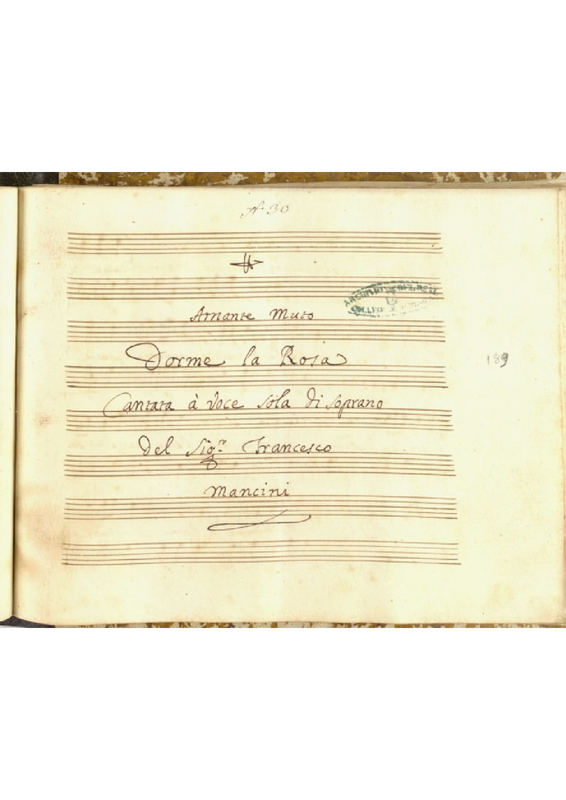 N. 30
Amante Muto
Dorme la Rosa
Cantata à Voce Sola di Soprano
Del Sig.r Francesco
Mancini
189